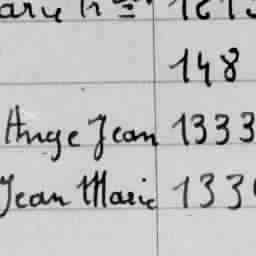 148
Ange Jean 1333
Jean Marie 133